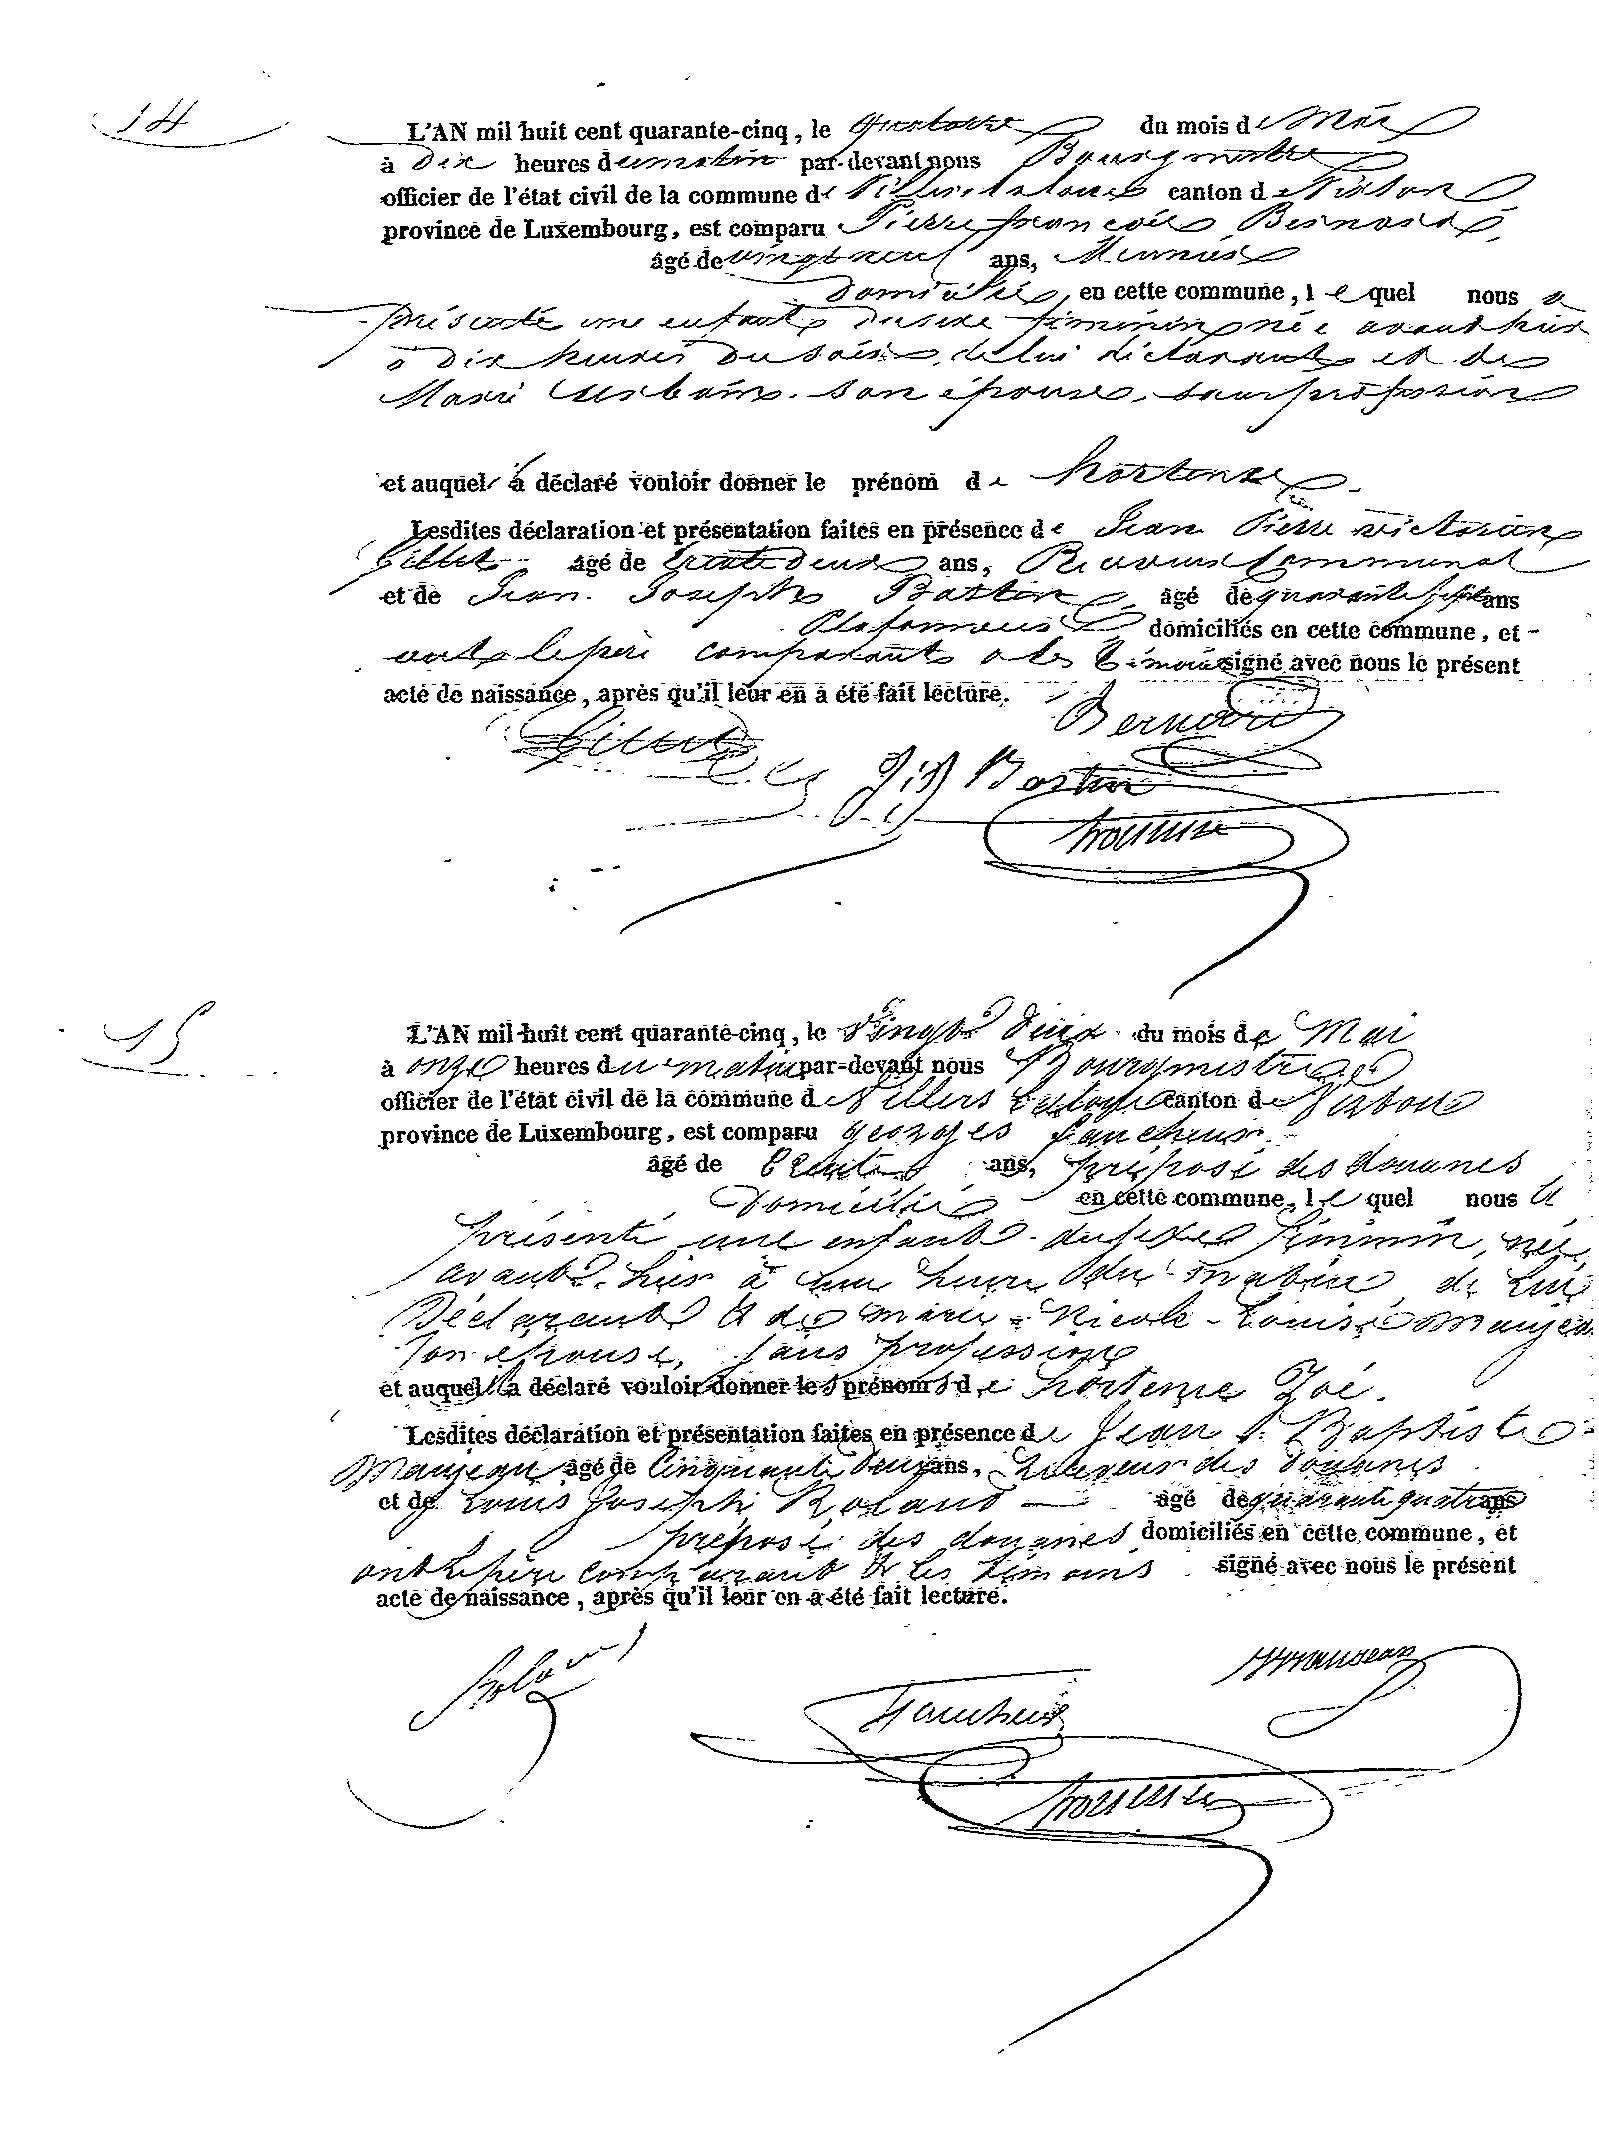 14
L'AN mil huit cent quarante-cinq, le quatorze du mois de Mai
à dix heures du matin par-devant nous Bourgmestre
officier de l'état civil de la commune de Villers canton de Virton
province de Luxembourg, est comparu Pierre françois Bernard,
âgé de vingt neuf ans, Meunier
domicilié, en cette commune, lequel nous a
présenté une enfant du sexe féminin née avant hier
à dix heures du soir, de lui déclarant et de
Marie son épouse, sans profession
et auquel a déclaré vouloir donner le prénom de hortense
Lesdites déclaration et présentation faites en présence de Jean Pierre victorin
Gillet âgé de trente deux ans, Receveur Communal
et de Jean Joseph Bastin, âgé de quarante sept ans
Plafonneur domiciliés en cette commune, et
ont le père comparant & les témoins signé avec nous le présent
acte de naissance, après qu'il leur en a été fait lecture.
Bernard
Gillet
J. J. Bastin
15
L'AN mil huit cent quarante-cinq, le Vingt deux du mois de Mai
à onze heures du matin par-devant nous Bourgmestre
officier de l'état civil de la commune de Villers canton de Virton
province de Luxembourg, est comparu georges faucheur
âgé de trente ans, préposé des douanes
Domicilié en cette commune, lequel nous a
présenté une enfant du sexe féminin, née
avant hier à une heure du matin, de lui
Déclarant & de marie-Nicole-Louise Manjean
son épouse, sans profession
et auquel il a déclaré vouloir donner les prénoms de hortense Zoé.
Lesdites déclaration et présentation faites en présence de Jean Baptiste
Manjean âgé de Cinquante deux ans, Receveur des douanes
et de Louis Joseph Roland âgé de quarante quatre ans
préposé des douanes domiciliés en cette commune, et
ont le père comparant & les témoins signé avec nous le présent
acte de naissance, après qu'il leur en a été fait lecture.
Roland
Manjean
Faucheur